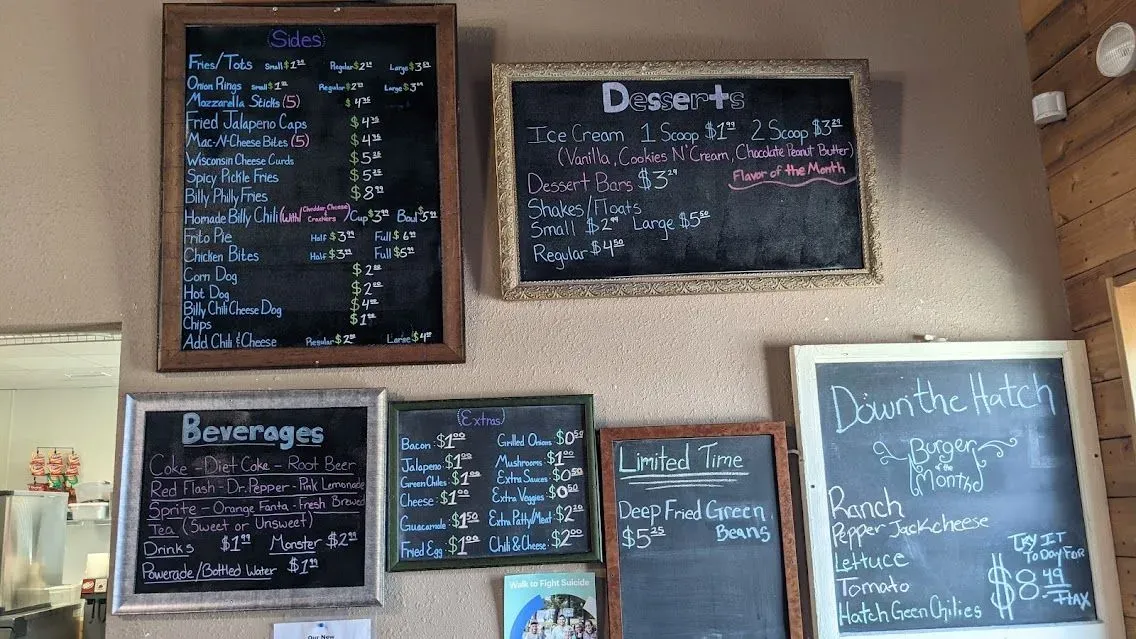 Sides
Fries/Tots Small $1 Regular $2 Large $3
Onion Rings Small $1 Regular $2 Large $3
Mozzarella Sticks (5) $4
Fried Jalapeno Caps $4
Mac-N-Cheese Bites (5) $4
Wisconsin Cheese Curds $5
Spicy Pickle Fries $5
Billy Philly Fries $8
Homade Billy Chili (with/ Cheddar Cheese Crackers) Cup $3.99 Bowl $5
Frito Pie Half $3.99 Full $6
Chicken Bites Half $3 Full $5
Corn Dog $2
Hot Dog $2
Billy Chili Cheese Dog $4
Chips $1
Add Chili & Cheese Regular $2 Large $4
Desserts
Ice Cream 1 Scoop $1.99 2 Scoop $3.29
(Vanilla, Cookies N' Cream, Chocolate Peanut Butter)
Dessert Bars $3.29 Flavor of the Month
Shakes/Floats
Small $2.99 Large $5.50
Regular $4.50
Beverages
Coke - Diet Coke - Root Beer
Red Flash - Dr. Pepper - Pink Lemonade
Sprite - Orange Fanta - Fresh Brewed
Tea (Sweet or Unsweet)
Drinks $1.99 Monster $2.99
Powerade/Bottled Water $1.99
Extras
Bacon: $1.00 Grilled Onions: $0.50
Jalapeno: $1.00 Mushrooms: $1.00
Green Chiles: $1.00 Extra Sauces: $0.50
Cheese: $1.00 Extra Veggies: $0.50
Guacamole: $1.50 Extra Patty/Meat: $2
Fried Egg: $1.00 Chili & Cheese: $2.00
Limited Time
Deep Fried Green
$5.25 Beans
Down the Hatch
Burger
of the
Month
Ranch
Pepper Jack cheese
Lettuce
Tomato
Hatch Geen Chilies
Try IT
ToDay FoR
$8.49
+TAX
Walk to Fight Suicide
Our New